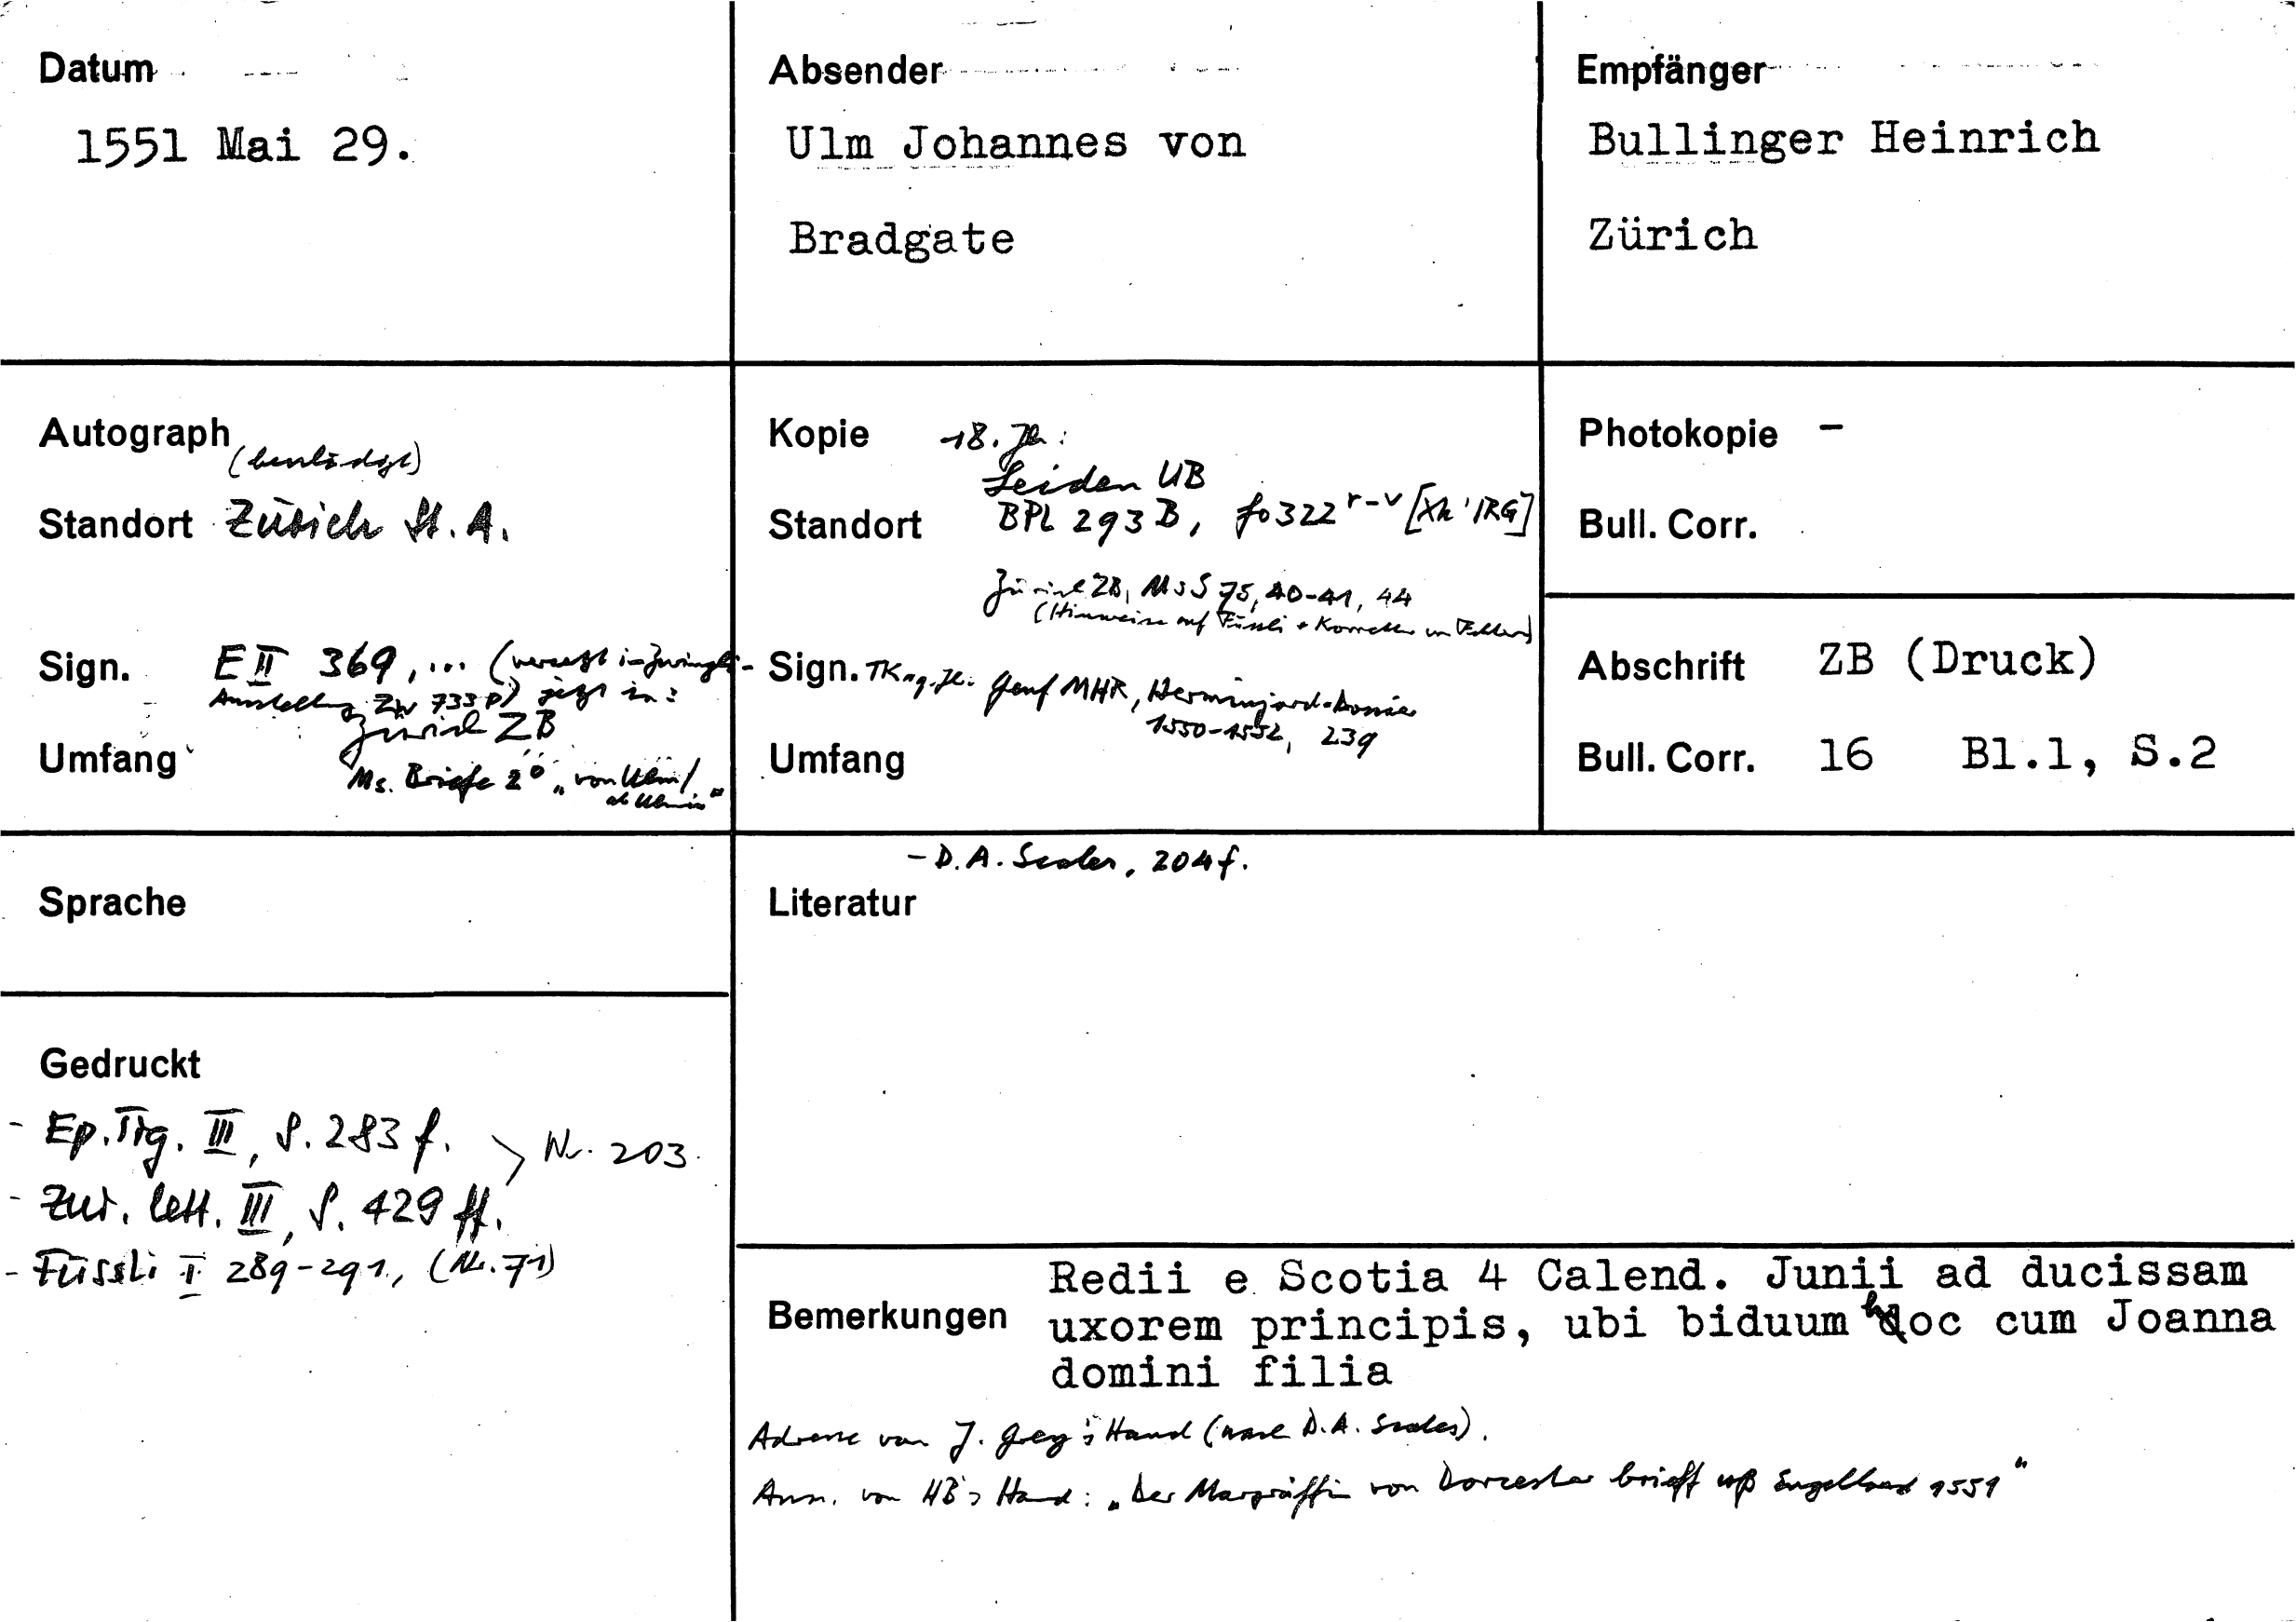 Datum
1551 Mai 29.
Absender
Ulm Johannes von
Bradgate
Empfänger
Bullinger Heinrich
Zürich
Autograph
Standort Zürich St. A.
Sign. E II 369, ... (versetzt in Zwingli-
Ausstellung Zw 733 p) jetzt in:
Zürich ZB
Umfang
Ms. Briefe 2° „von Ulm/
ab Ulmis"
Kopie 18. Jh:
Leiden UB
Standort BPL 293 B, fo 322 r-v [Xh' IRG]
Zürich ZB, Ms S 75, 40-41, 44
(Hinweise auf Füssli + Korrektur von Fehlern)
Sign. TK 19. Jh. Genf MHR, Herminjard-Dossier
1550-1552, 239
Umfang
Photokopie -
Bull. Corr.
Abschrift ZB (Druck)
Bull. Corr. 16 Bl.1, S.2
Sprache
- D.A. Scales, 204 f.
Literatur
Gedruckt
- Ep. Tig. III, S. 283 f. > Nr. 203.
- Zur. lett. III, S. 429 ff.
- Füssli I 289-291, (Nr. 71)
Bemerkungen
Redii e Scotia 4 Calend. Junii ad ducissam
uxorem principis, ubi biduum hoc cum Joanna
domini filia
Adresse von J. Grey's Hand (nach D.A. Scales).
Anm. von HB's Hand: „Der Margräffin von Dorcester brieff uß Engelland 1551"